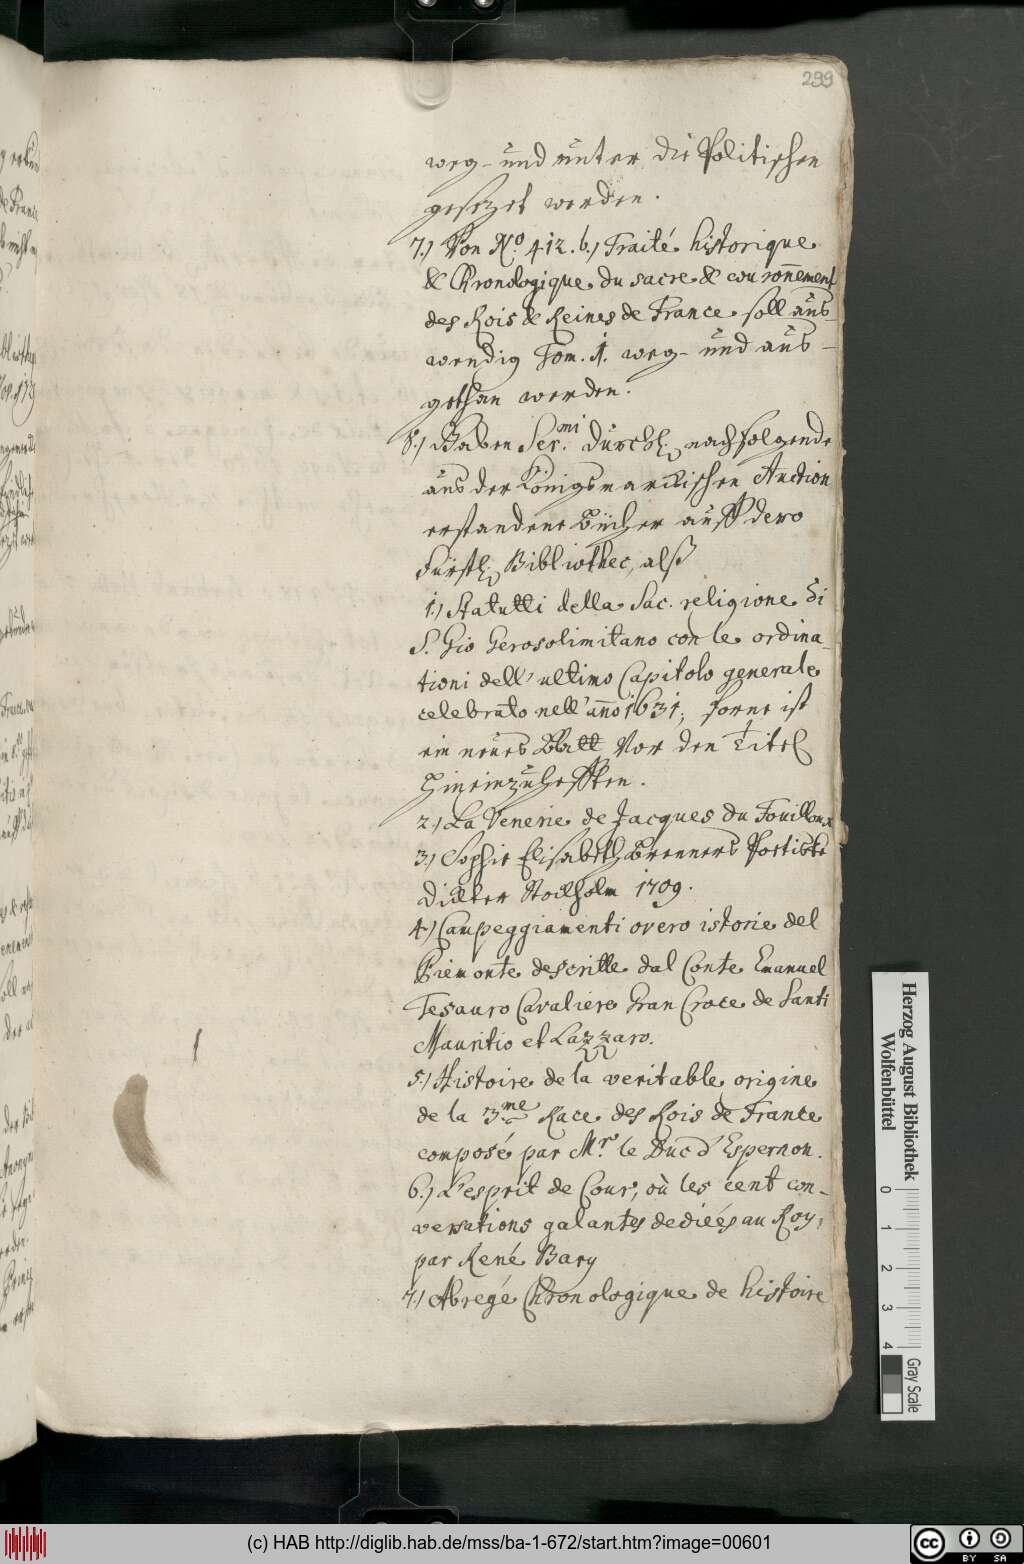 299
weg- und unter die Politischen
gesezet werden.
7.) Von No. 412. b.) Traité historique
& Chronologique du sacre & couronnement
des Rois & Reines de France soll aus-
wendig Tom. 1. weg- und aus-
gethan werden.
8.) Haben Ser.mi Durchl. nachfolgende
aus der Königsmarckischen Auction
erstandene Bücher auff dero
Fürstl. Bibliothec, alß
1.) Statutti della Sac. religione di
S. Gio Gerosolimitano con le ordina-
tioni dell' ultimo Capitolo generale
celebrato nell' anno 1631; forne ist
ein neues Blatt vor den Titel
hineinzuhefften.
2.) La Venerie de Jacques du Fouilloux
3.) Sophie Elisabeth Brenners Poetiske
Dickter Stockholm 1709.
4.) Campeggiamenti overo istorie del
Piemonte descritte dal Conte Emanuel
Tesauro Cavaliere Gran Croce de Santi
Mauritio et Lazzaro.
5.) Histoire de la veritable origine
de la 3me Race des Rois de France
composé par Mr. le Duc d'Espernon.
6.) L'esprit de Cour, où les cent con-
versations galantes dediées au Roy,
par René Bary
7.) Abregé Chronologique de histoire
Herzog August Bibliothek
Wolfenbüttel
0 1 2 3 4
Gray Scale
(c) HAB http://diglib.hab.de/mss/ba-1-672/start.htm?image=00601
cc BY SA